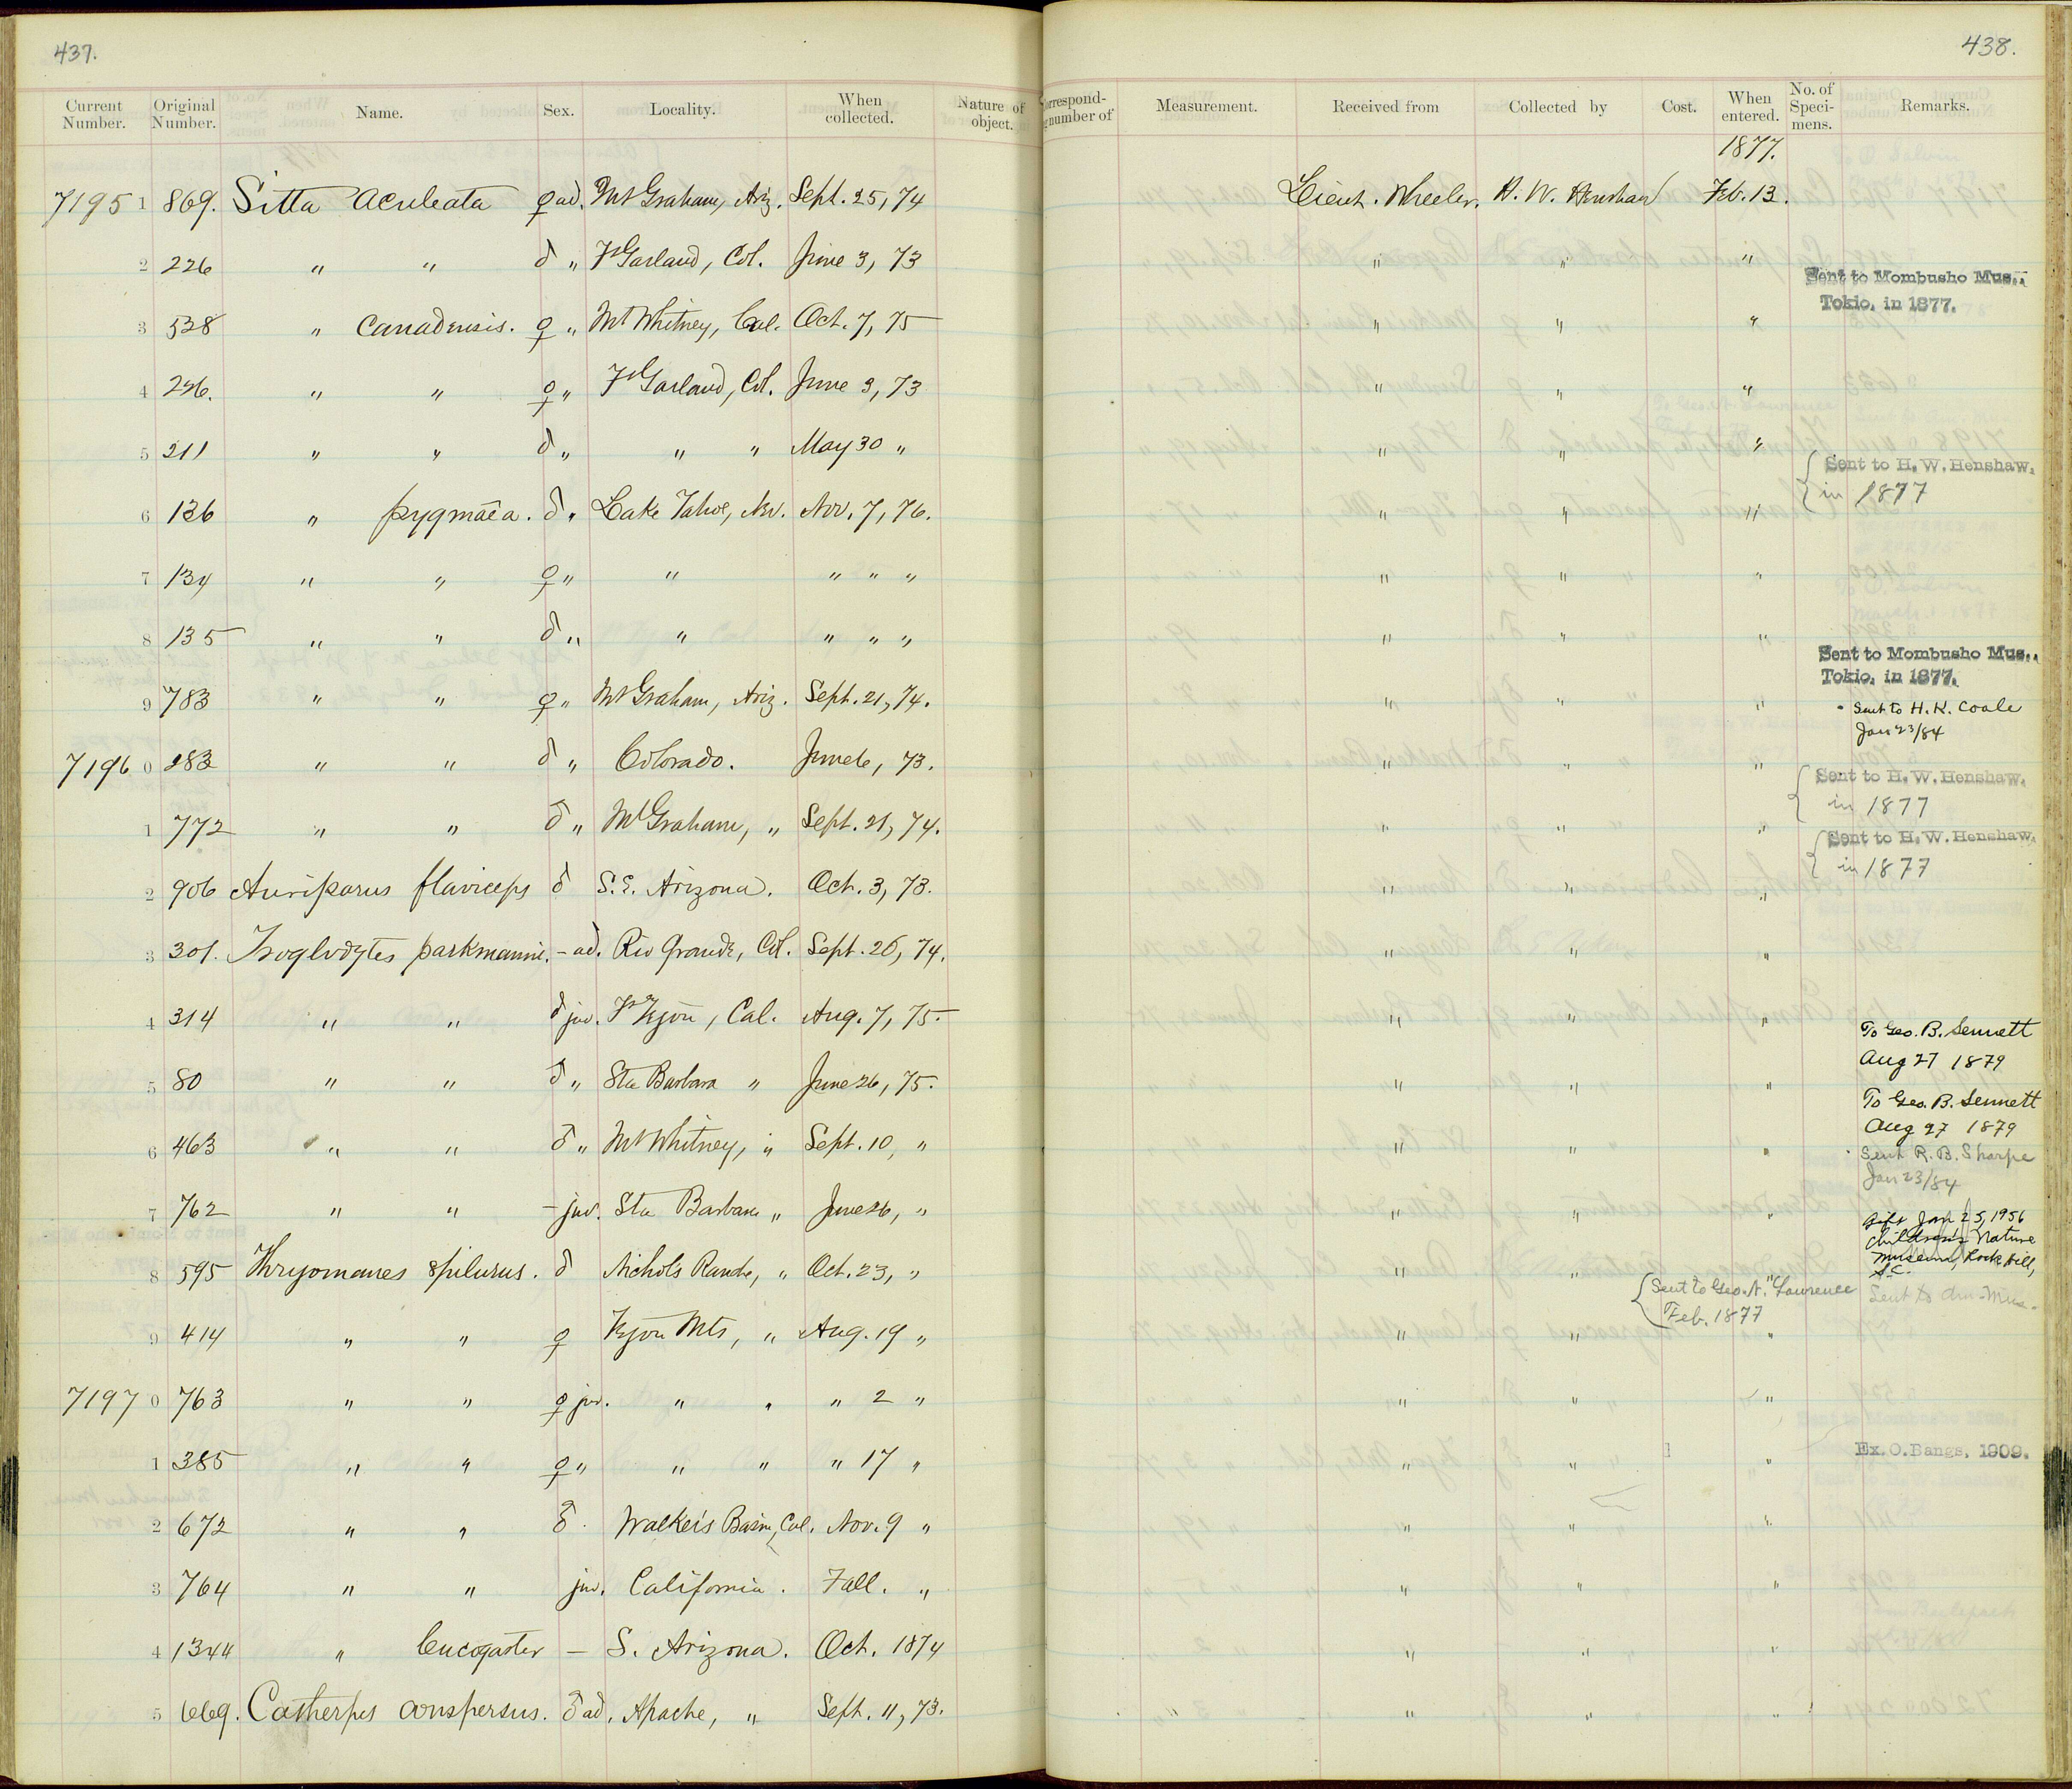 437.
Current Number. Original Number. Name. Sex. Locality. When collected. Nature of object.
7195 1 869. Sitta aculeata ♀ ad. Mt Graham, Ariz. Sept. 25, 74
2 226 " " ♂ " Ft Garland, Col. June 3, 73
3 528 " Canadensis. ♀ " Mt Whitney, Cal. Oct. 7, 75
4 226. " " ♀ " Ft Garland, Col. June 3, 73
5 211 " " ♂ " " " May 30 "
6 136 " pygmaea. ♂ " Lake Tahoe, Nev. Nov. 7, 76.
7 134 " " ♀ " " " " "
8 135 " " ♂ " " " " "
9 783 " " ♀ " Mt Graham, Ariz. Sept. 21, 74.
7196 0 283 " " ♂ " Colorado. June 6, 73.
1 772 " " ♂ " Mt Graham, " Sept. 21, 74.
2 906 Auriparus flaviceps ♂ S.E. Arizona. Oct. 3, 73.
3 301. Troglodytes parkmanni. - ad. Rio Grande, Col. Sept. 26, 74.
4 314 " " ♂ juv. Ft Tejon, Cal. Aug. 7, 75.
5 80 " " ♂ " Sta Barbara " June 26, 75.
6 463 " " ♂ " Mt Whitney, " Sept. 10, "
7 762 " " - juv. Sta Barbara " June 26, "
8 595 Thryomanes spilurus. ♂ Nichols Ranche, " Oct. 23, "
9 414 " " ♀ Tejon Mts, " Aug. 19 "
7197 0 763 " " ♀ juv. " " " 2 "
1 385 " " ♀ " " " " 17 "
2 672 " " ♂. Walker's Basin, Cal. Nov. 9 "
3 764 " " juv. California. Fall. "
4 1344 " leucogaster - S. Arizona. Oct. 1874
5 669. Catherpes conspersus. ♂ ad. Apache, " Sept. 11, 73.
438.
orrespond- g number of Measurement. Received from Collected by Cost. When entered. No. of Speci- mens. Remarks.
1877.
Lieut. Wheeler. H. W. Henshaw Feb. 13.
" " "
Sent to Mombusho Mus..
Tokio, in 1877.
" " "
" " "
" " "
{ Sent to H. W. Henshaw.
in 1877
" " "
" " "
" " "
Sent to Mombusho Mus..
Tokio, in 1877.
" " "
Sent to H. K. Coale
Jan 23/84
" " "
{ Sent to H. W. Henshaw.
in 1877
" " "
{ Sent to H. W. Henshaw.
in 1877
" " "
" " "
" " "
To Geo. B. Sennett
Aug 27 1879
" " "
To Geo. B. Sennett
Aug 27 1879
" " "
Sent R. B. Sharpe
Jan 23/84
" " "
Gift Jan 25, 1956
Children's Nature
Museum, Rock Hill,
S.C.
" "
{ Sent to Geo. N. Lawrence
Feb. 1877
Sent to Am. Mus.
" " "
" " "
" " "
Ex. O. Bangs, 1909.
" " "
" " "
" " "
" " "